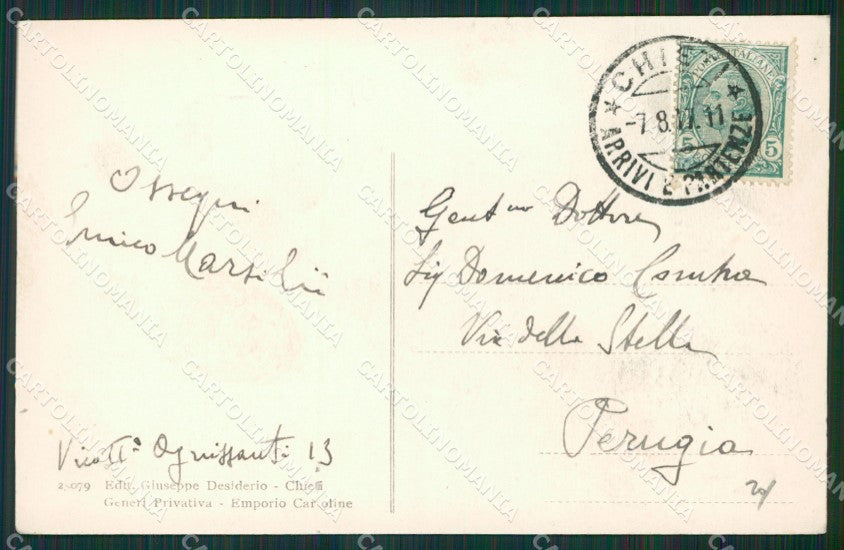 Ossequi
Enrico Marsilii
Vico II° Ognissanti 13
2-079 Edit. Giuseppe Desiderio - Chieti
Generi Privativa - Emporio Cartoline
CHIETI
-7.8.11.11
ARRIVI E PARTENZE
5 5
Gentmo Dottore
Sig Domenico
Via della Stella
Perugia
CARTOLINOMANIA